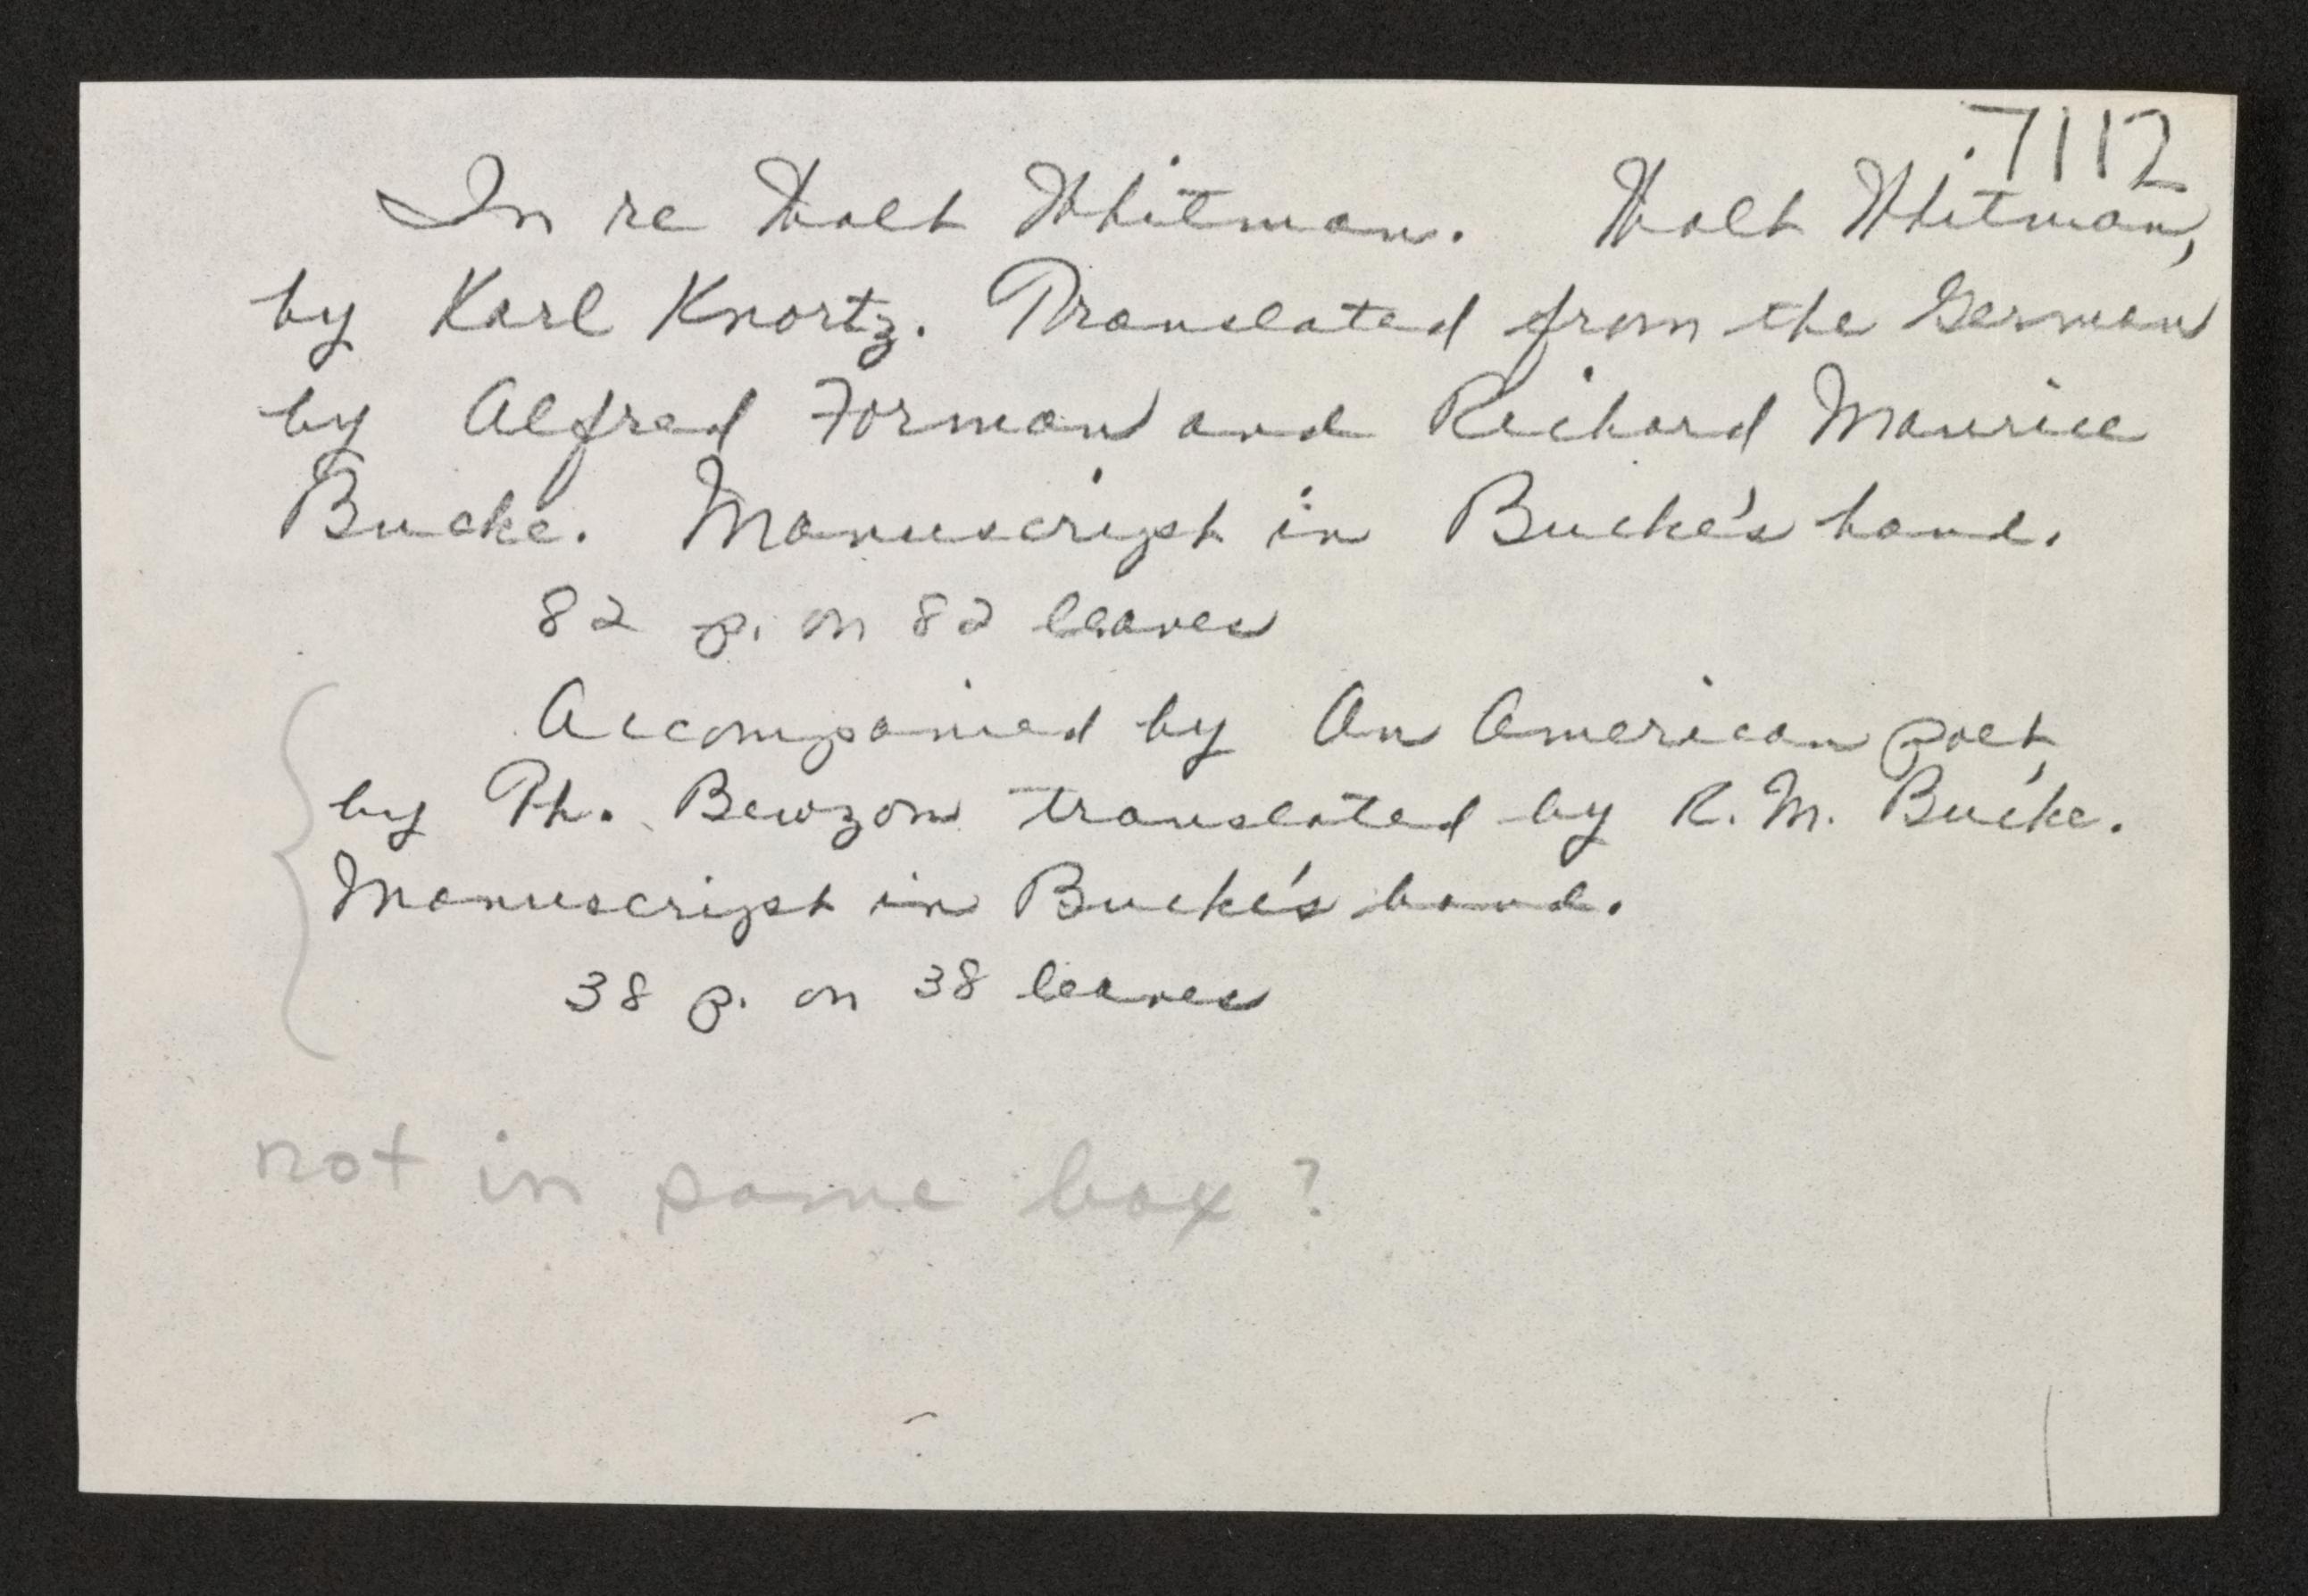 7112
In re Walt Whitman. Walt Whitman,
by Karl Knortz. Translated from the German
by Alfred Forman and Richard Maurice
Bucke. Manuscript in Bucke's hand.
82 p. on 82 leaves
Accompanied by An American poet,
by Ph. Bewzon translated by R. M. Bucke.
Manuscript in Bucke's hand.
38 p. on 38 leaves
not in same box?